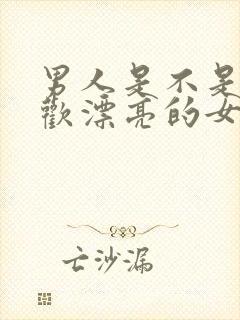 男人是不是
歡漂亮的女
亡沙漏